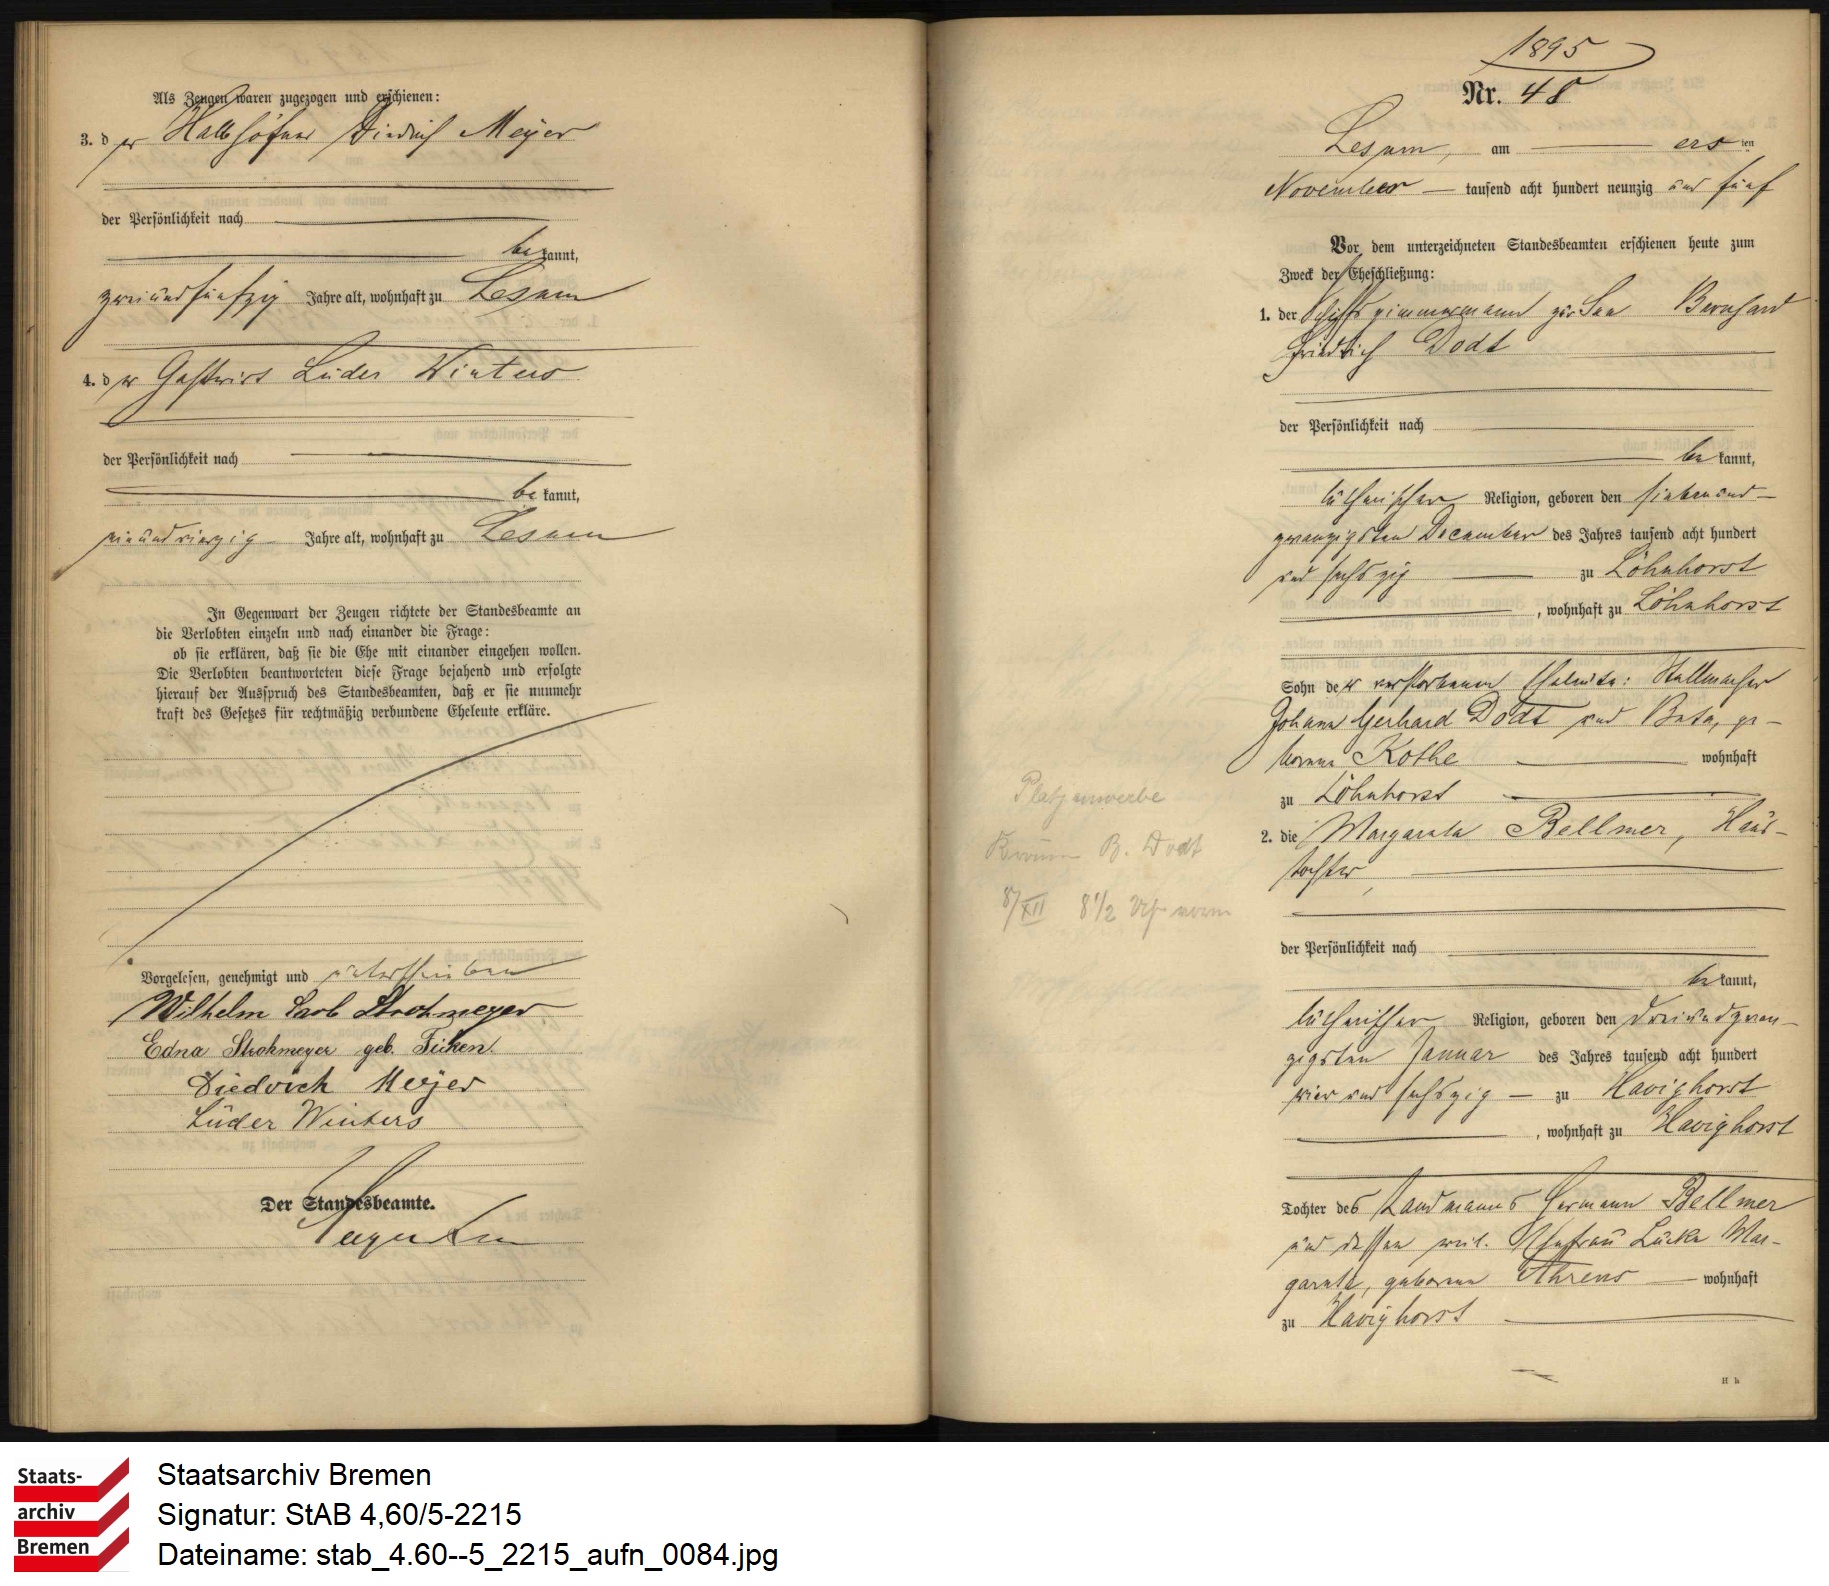 Als Zeugen waren zugezogen und erschienen:
3. der Halbhöfner Diedrich Meyer
der Persönlichkeit nach
bekannt,
zweiundfünfzig Jahre alt, wohnhaft zu Lesum
4. der Gastwirt Lüder Winters
der Persönlichkeit nach
bekannt,
neunundvierzig Jahre alt, wohnhaft zu Lesum
In Gegenwart der Zeugen richtete der Standesbeamte an
die Verlobten einzeln und nach einander die Frage:
ob sie erklären, daß sie die Ehe mit einander eingehen wollen.
Die Verlobten beantworteten diese Frage bejahend und erfolgte
hierauf der Ausspruch des Standesbeamten, daß er sie nunmehr
kraft des Gesetzes für rechtmäßig verbundene Eheleute erkläre.
Vorgelesen, genehmigt und unterschrieben
Wilhelm Carl Strohmeyer
Edna Strohmeyer geb. Ficken.
Diedrich Meyer
Lüder Winters
Der Standesbeamte.
1895
Nr. 48
Lesum, am ersten
November tausend acht hundert neunzig und fünf
Vor dem unterzeichneten Standesbeamten erschienen heute zum
Zweck der Eheschließung:
1. der Schiffszimmermann zur See Bernhard
Friedrich Dodt
der Persönlichkeit nach
bekannt,
lutherischer Religion, geboren den siebenund-
zwanzigsten December des Jahres tausend acht hundert
und sechszig zu Löhnhorst
, wohnhaft zu Löhnhorst
Sohn der verstorbenen Eheleute: Stellmacher
Johann Gerhard Dodt und Beta, ge-
borene Kothe wohnhaft
zu Löhnhorst
Platjenwerbe
B. Dodt
8/XII 8 1/2 Uhr vorm
2. die Margareta Bellmer, Haus-
tochter
der Persönlichkeit nach
bekannt,
lutherischer Religion, geboren den dreiundzwan-
zigsten Januar des Jahres tausend acht hundert
vier und sechszig zu Havighorst
, wohnhaft zu Havighorst
Tochter des Landmanns Hermann Bellmer
und dessen weil. Ehefrau Lücke Mar-
gareta, geborene Ahrens wohnhaft
zu Havighorst
H h
Staats-
archiv
Bremen
Staatsarchiv Bremen
Signatur: StAB 4,60/5-2215
Dateiname: stab_4.60--5_2215_aufn_0084.jpg